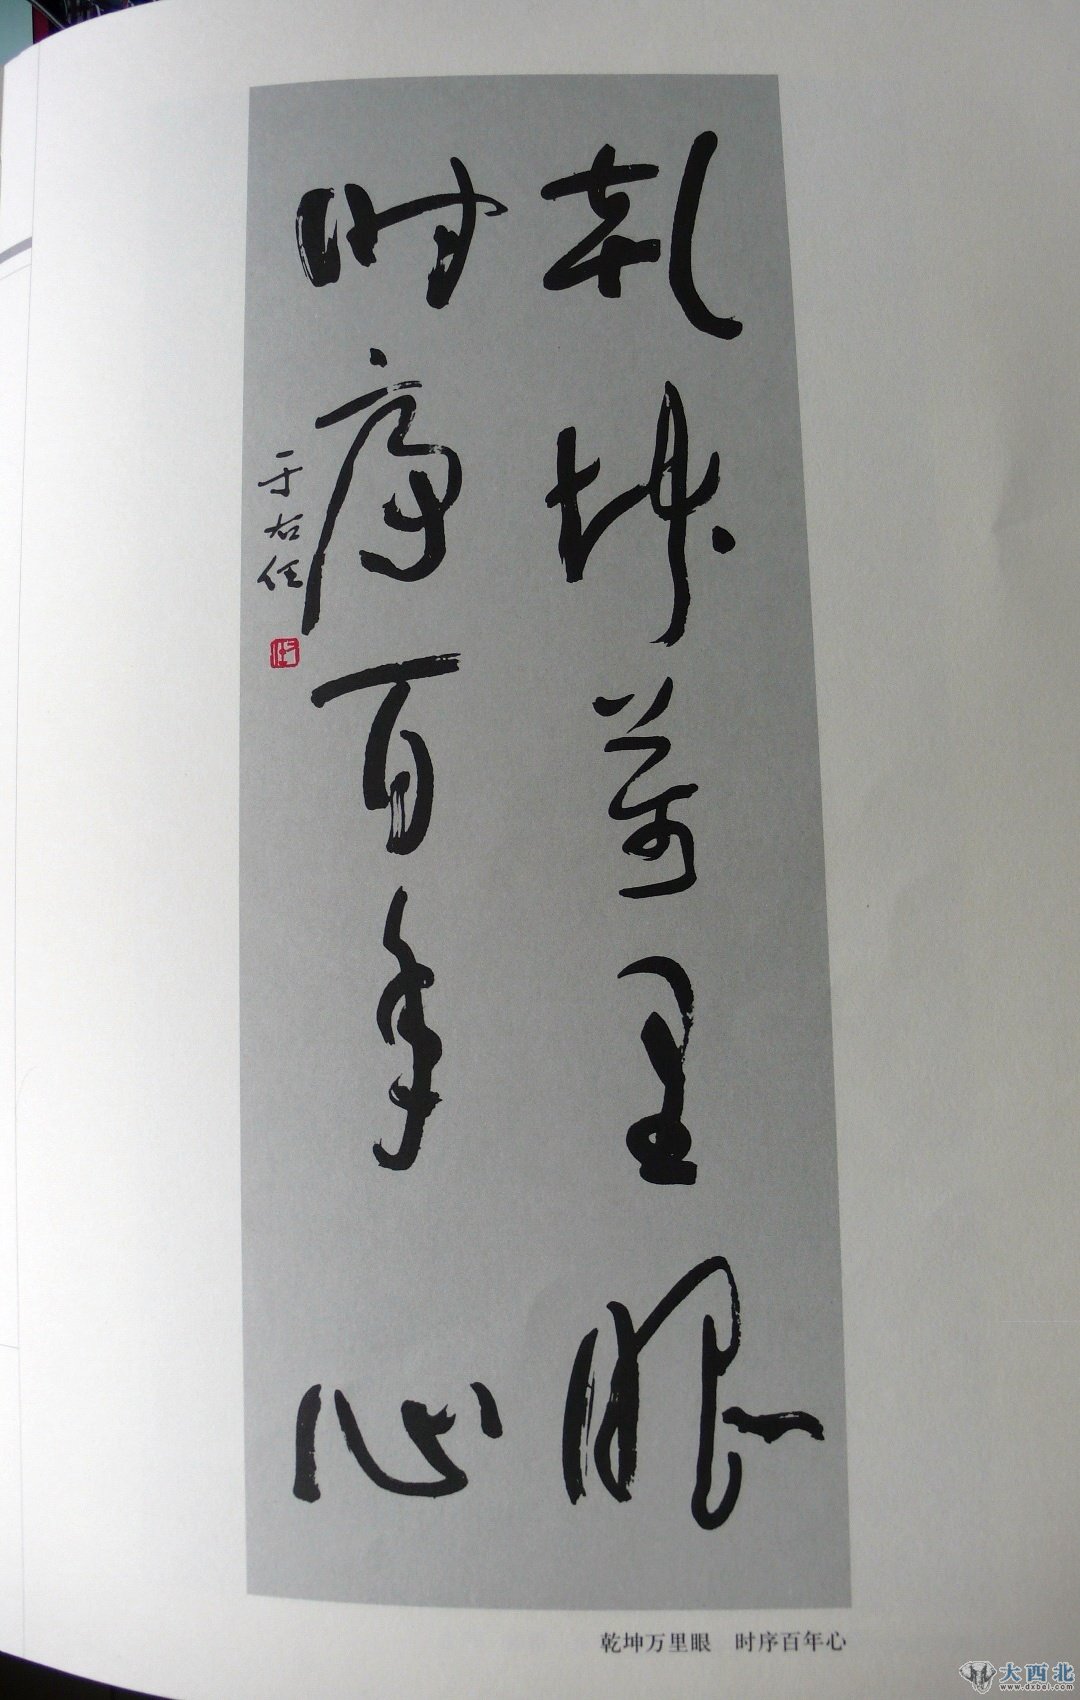 乾坤万里眼
时序百年心
于右任
乾坤万里眼 时序百年心
大西北
www.dxbei.com